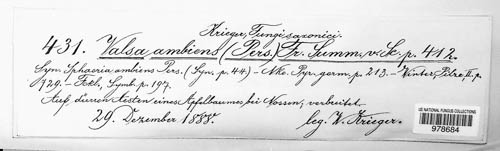 Krieger, Fungi saxonici.
431. Valsa ambiens (Pers.) Fr. Summ. v. Sc. p. 412.
Syn. Sphaeria ambiens Pers. (Syn. p. 44) – Nke. Pyr. germ. p. 213. – Winter, Pilze, II. p.
729. – Fckl. Symb. p. 197.
Auf dürren Aesten eines Apfelbaumes bei Nossen, verbreitet.
29. Dezember 1888. leg. W. Krieger.
US NATIONAL FUNGUS COLLECTIONS
978684